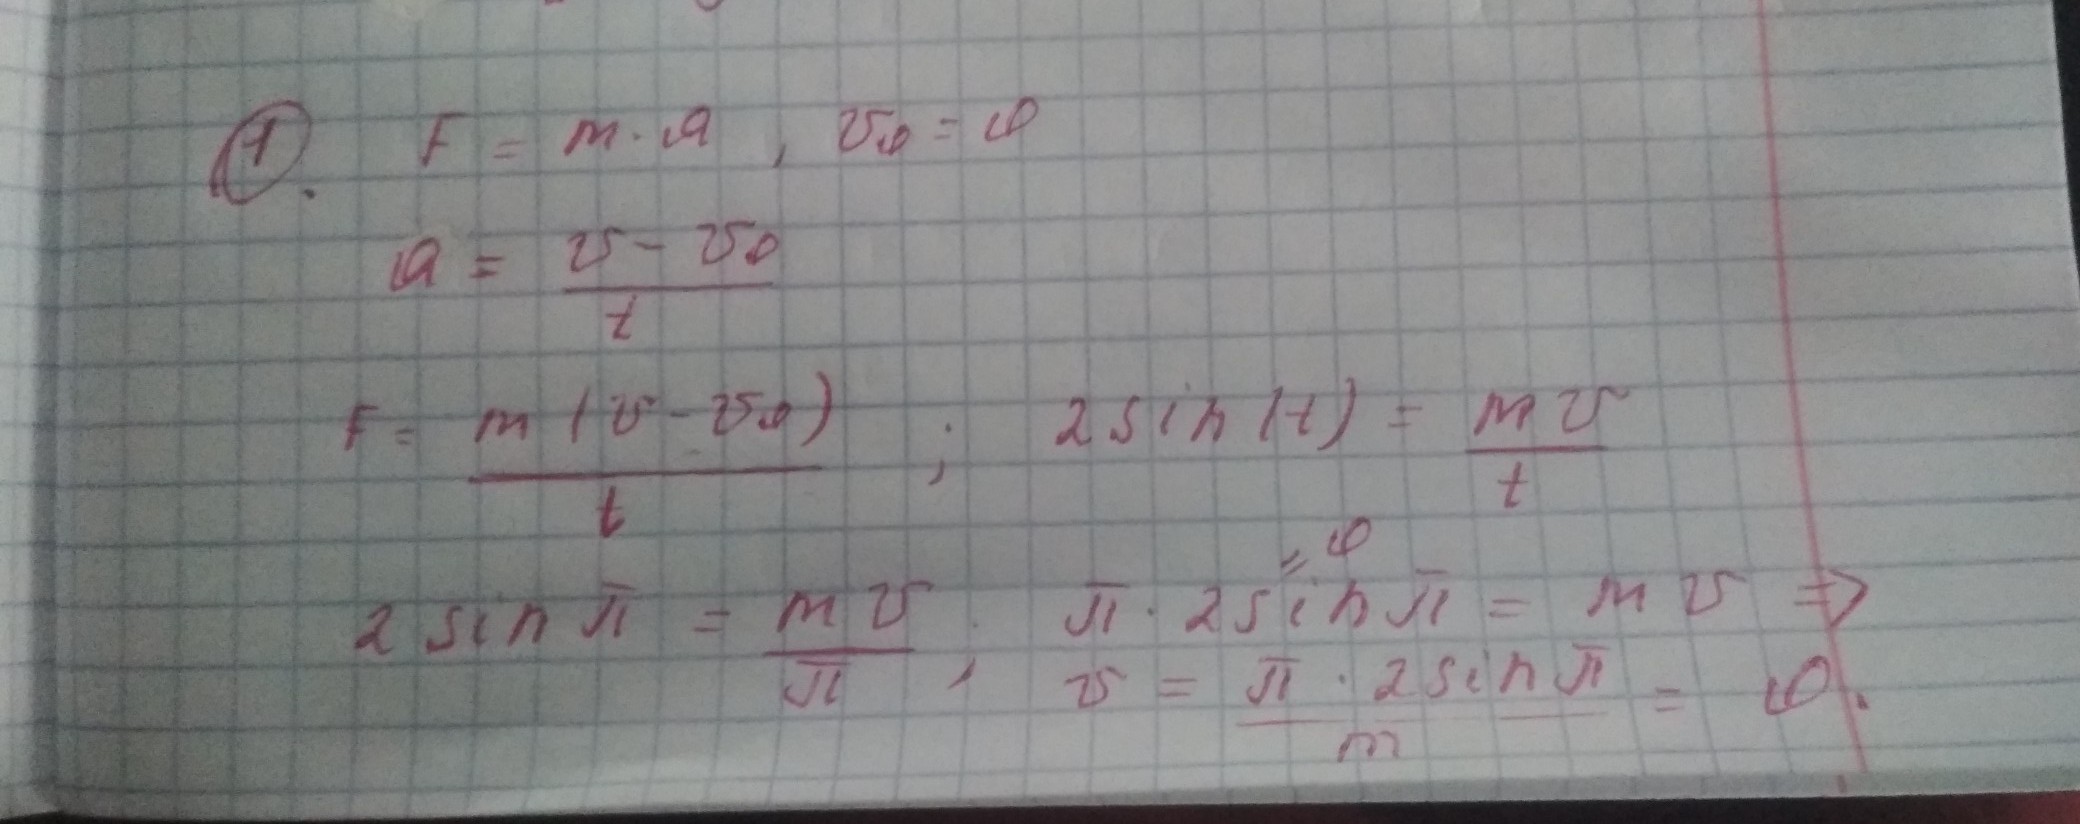 1. F = m · a , v₀ = 0
a = (v - v₀)/t
F = m(v - v₀)/t ; 2sin(t) = mv/t
= 0
2 sin π = mv/π , π · 2 sin π = mv ⇒
v = π · 2 sin π/m = 0.